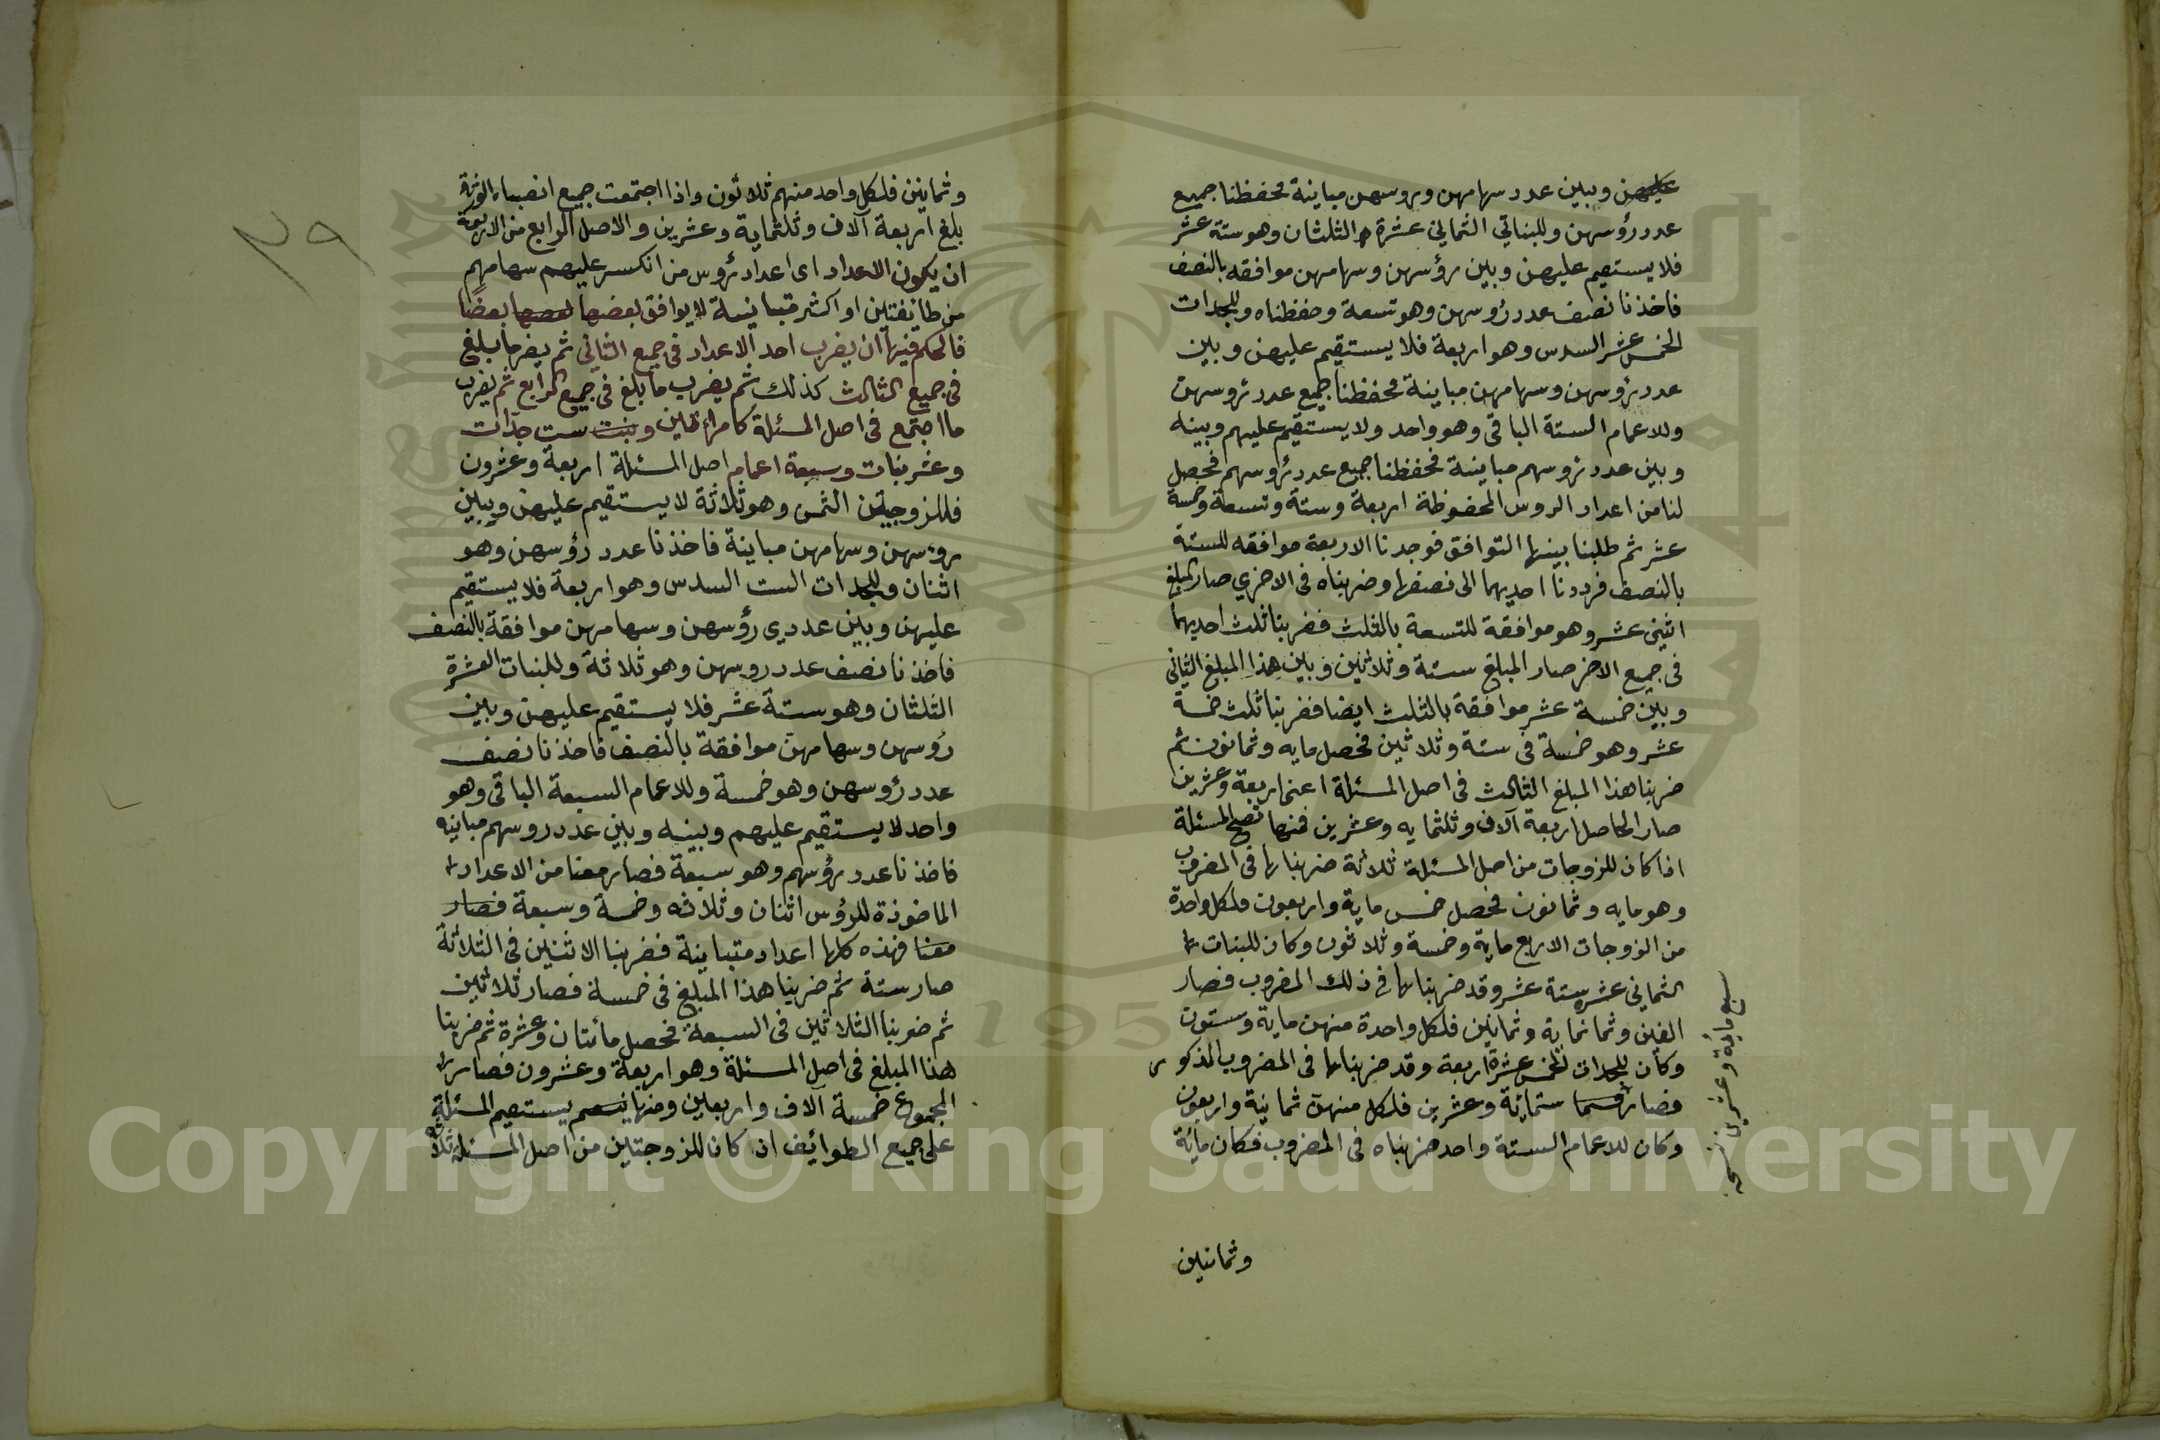 عليهن وبين عدد سهامهن وروسهن مباينة فحفظنا جميع
عدد رؤسهن وللبناتي الثماني عشرة الثلثان وهو ستة عشر
فلا يستقيم عليهن وبين رؤسهن وسهامهن موافقه بالنصف
فاخذنا نصف عدد رؤسهن وهو تسعة وحفظناه وللجدات
الخمس عشر السدس وهو اربعة فلا يستقيم عليهن وبين
عدد رؤسهن وسهامهن مباينة فحفظنا جميع عدد رؤسهن
وللاعمام الستة الباقي وهو واحد ولا يستقيم عليهم وبينه
وبين عدد رؤسهم مباينة فحفظنا جميع عدد رؤسهم فحصل
لنا من اعداد الروس المحفوظة اربعة وستة وتسعة وخمسة
عشر ثم طلبنا بينها التوافق فوجدنا الاربعة موافقه للستة
بالنصف فرددنا احديهما الى نصفها وضربناه في الاخري صار المبلغ
اثني عشر وهو موافقة للتسعة بالثلث فضربنا ثلث احديهما
في جميع الاخر صار المبلغ ستة وثلاثين وبين هذا المبلغ الثاني
وبين خمسة عشر موافقة بالثلث ايضا فضربنا ثلث خمسة
عشر وهو خمسة في ستة وثلاثين فحصل مايه وثمانون ثم
ضربنا هذا المبلغ الثالث في اصل المسئلة اعني اربعة وعشرين
صار الحاصل اربعة آلاف وثلثمايه وعشرين فمنها تصح المسئلة
اذا كان للزوجات من اصل المسئلة ثلاثة ضربناها في المضروب
وهو مايه وثمانون فحصل خمس ماية واربعون فلكل واحدة
من الزوجات الاربع ماية وخمسة وثلاثون وكان للبنات
الثماني عشرة ستة عشر وقد ضربناها في ذلك المضروب فصار
الفين وثمانماية وثمانين فلكل واحدة منهن ماية وستون
وكان للجدات الخمس عشرة اربعة وقد ضربناها في المضروب المذكور
فصار سبع ماية وعشرين فلكل منهن ثمانية واربعون
وكان للاعمام الستة واحد ضربناه في المضروب فكان مائة
سبع ماية وعشرين نسخه
وثمانين
وثمانين فلكل واحد منهم ثلاثون واذا اجتمعت جميع انصباء الورثة
بلغ اربعة آلاف وثلثماية وعشرين والاصل الرابع من الاربعة
ان يكون الاعداد اى اعداد رؤس من انكسر عليهم سهامهم
من طائفتين او اكثر متباينة لا يوافق بعضها بعضا
فالحكم فيها ان يضرب احد الاعداد في جميع الثاني ثم يضرب ما بلغ
في جميع الثالث كذلك ثم يضرب ما بلغ في جميع الرابع ثم يضرب
ما اجتمع في اصل المسئلة كامراتين وست جدات
وعشر بنات وسبعة اعمام اصل المسئلة اربعة وعشرون
فللزوجتين الثمن وهو ثلاثة لا يستقيم عليهن وبين
رؤسهن وسهامهن مباينة فاخذنا عدد رؤسهن وهو
اثنان وللجدات الست السدس وهو اربعة فلا يستقيم
عليهن وبين عددي رؤسهن وسهامهن موافقة بالنصف
فاخذنا نصف عدد روسهن وهو ثلاثة وللبنات العشرة
الثلثان وهو ستة عشر فلا يستقيم عليهن وبين
رؤسهن وسهامهن موافقة بالنصف فاخذنا نصف
عدد رؤسهن وهو خمسة وللاعمام السبعة الباقي وهو
واحد لا يستقيم عليهم وبينه وبين عدد روسهم مباينه
فاخذنا عدد رؤسهم وهو سبعة فصار معنا من الاعداد
الماخوذة للرؤس اثنان وثلاثه وخمسة وسبعة فصار
معنا فهذه كلها اعداد متباينة فضربنا الاثنين في الثلاثة
صار ستة ثم ضربنا هذا المبلغ في خمسة فصار ثلاثين
ثم ضربنا الثلاثين في السبعة فحصل مأئتان وعشرة ثم ضربنا
هذا المبلغ في اصل المسئلة وهو اربعة وعشرون فصار
المجموع خمسة آلاف واربعين ومنها يستقيم المسئلة
على جميع الطوائف اذ كان للزوجتين من اصل المسئلة ثلاثة
٢٩